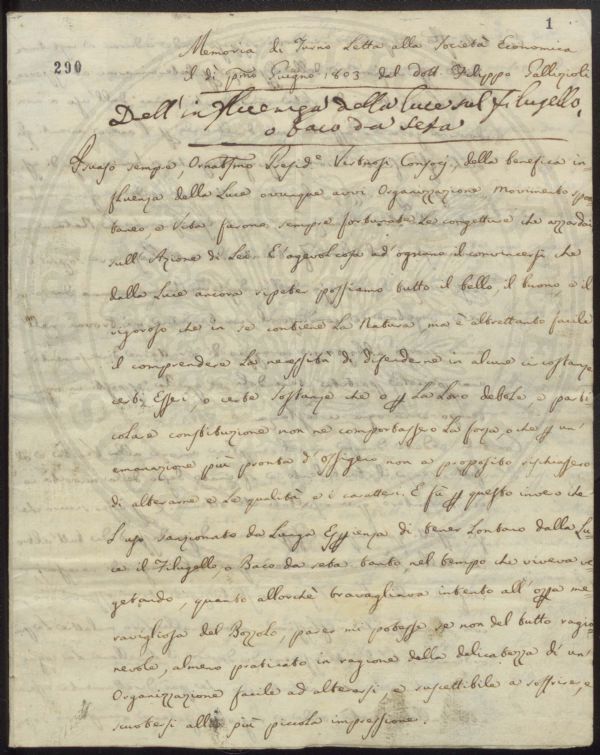 1
290
Memoria di Turno Letta alla Società Economica
il dì pmo Giugno 1803 dal dott. Filippo Gallizioli
Dell'influenza della luce sul filugello,
o baco da seta
Persuaso sempre, Ornatmo Preside Virtuosi Consocj, della benefica in-
fluenza della Luce ovunque avvi Organizzazione, movimento spon
taneo e Vita furono sempre fortunate Le congetture che azzardai
sull'Azione di Lei. È agevol cosa ad ognuno il convincersi che
dalla Luce ancora ripeter possiamo tutto il bello, il buono e il
vigoroso che in se contiene La Natura, ma è altrettanto facile
il comprendere La necessità di difenderne in alcune circostanze
certi Esseri, o certe Sostanze che o p La Loro debole e parti
colare constituzione non ne comportassero La forza, o che p un'
emanazione più pronta d'ossigeno non a proposito rischiassero
di alterarne e Le qualità, e i caratteri. E fù p questo invero che
L'uso sanzionato da Lunga Esperienza di tener Lontano dalla Lu
ce il Filugello, o Baco da seta tanto nel tempo che viveva ve-
getando, quanto allorchè travagliava intento all'opra me-
ravigliosa del Bozzolo, parer mi potesse se non del tutto ragio-
nevole, almeno praticato in ragione della delicatezza di un'
Organizzazione facile ad alterarsi, e suscettibile a soffrire, e
scuotersi alla più piccola impressione.